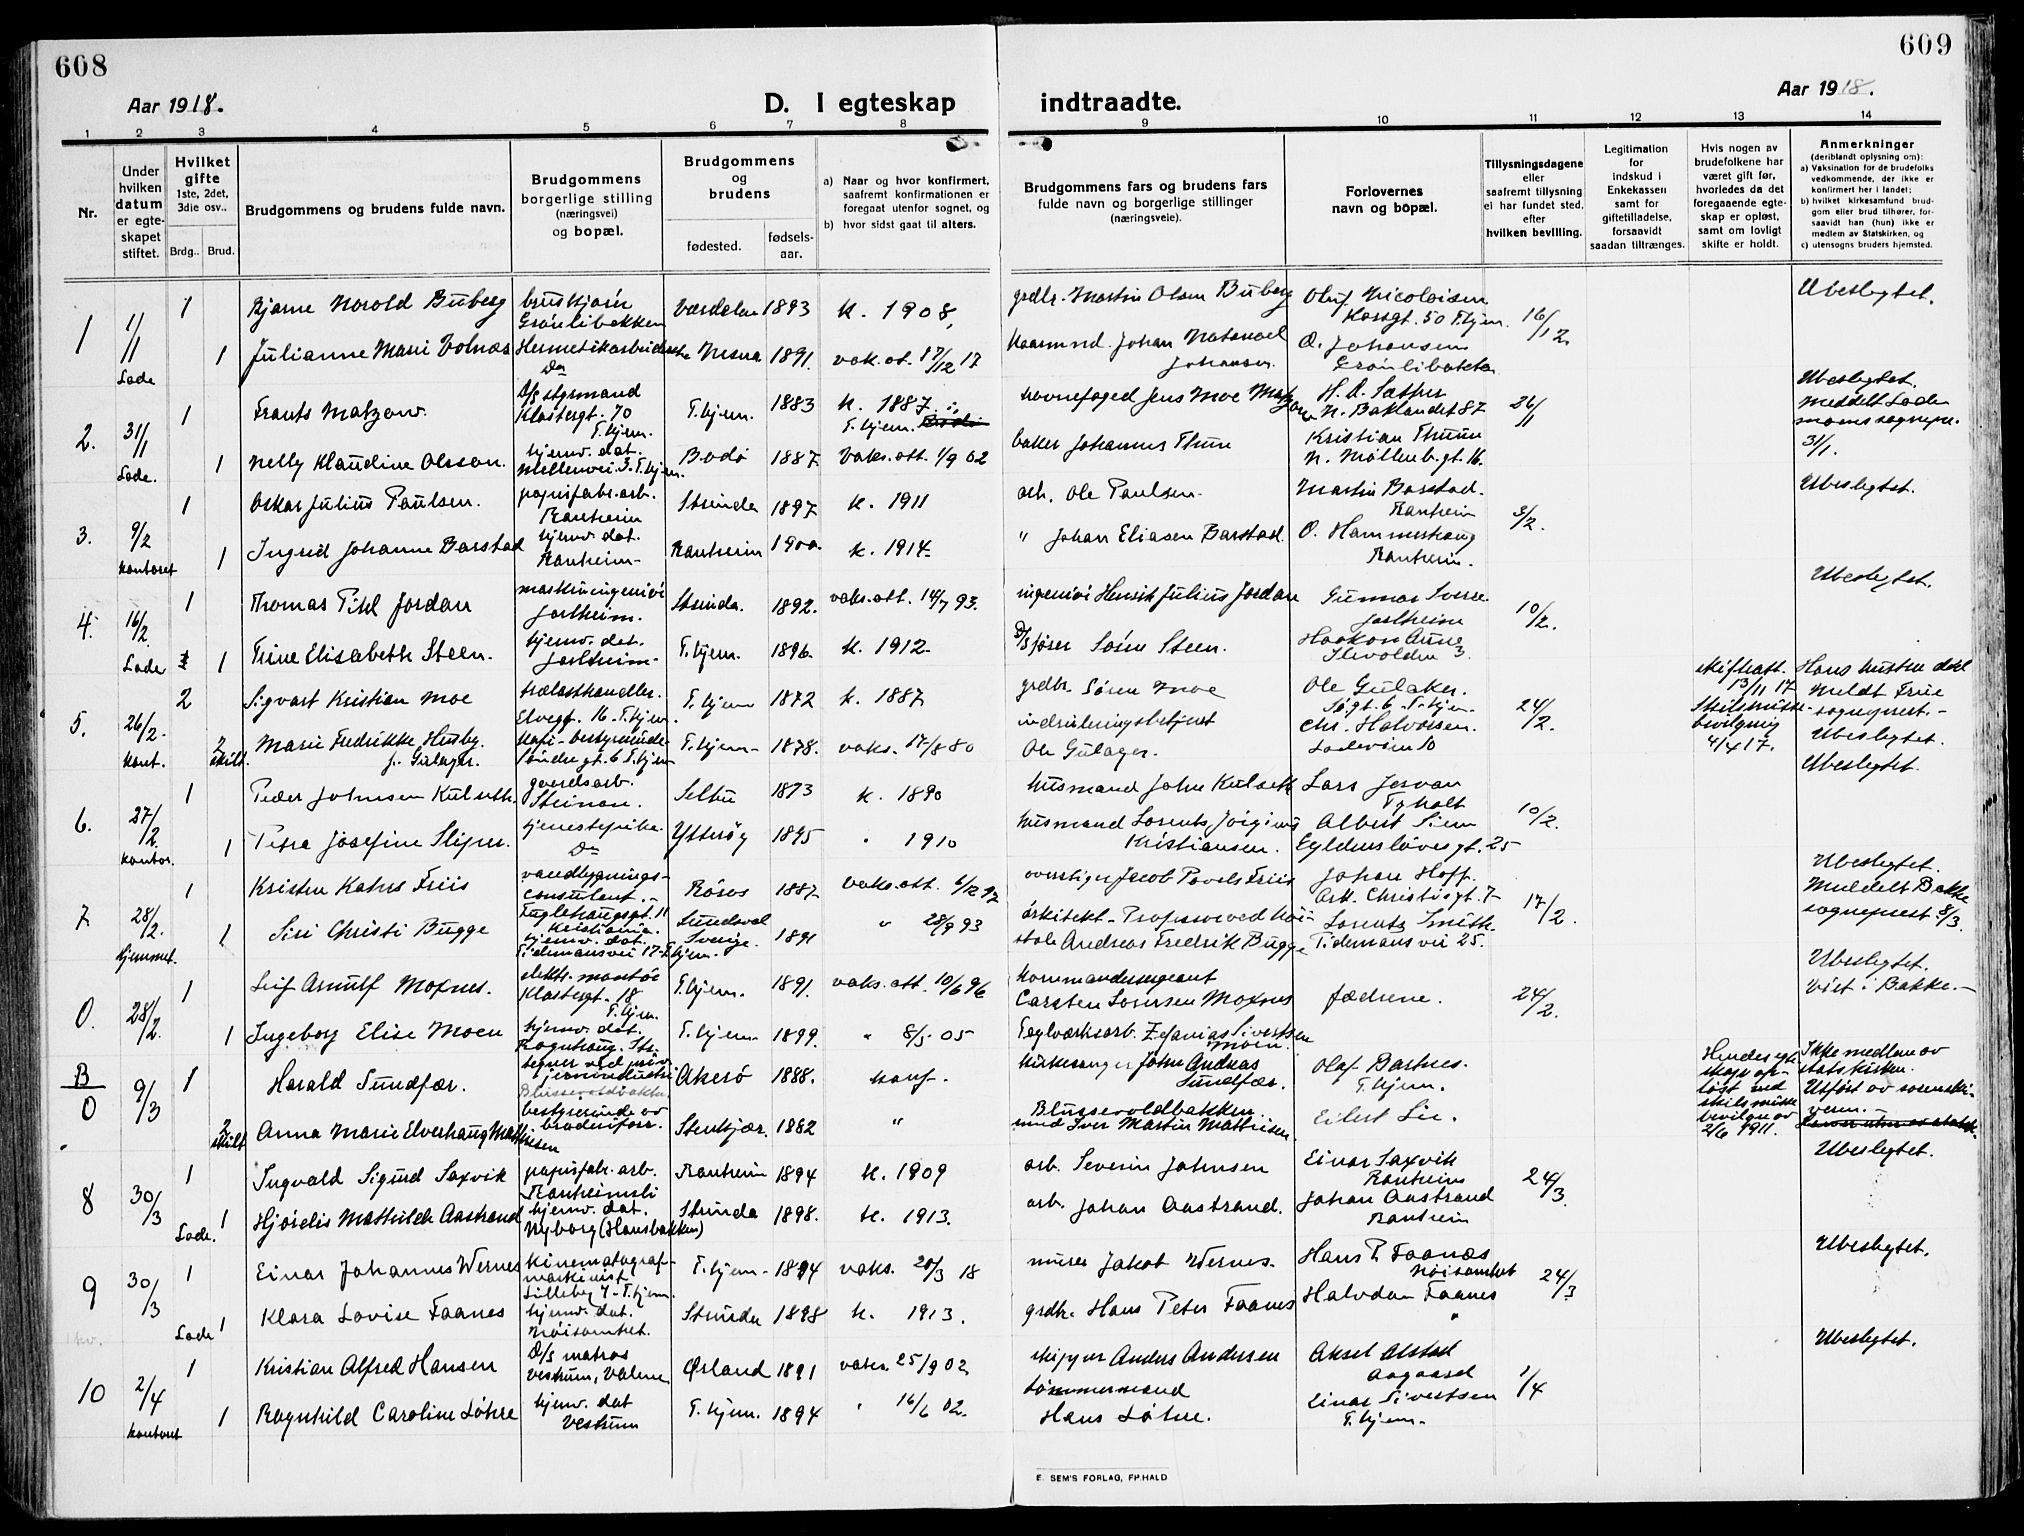 608
609
Aar 1918.
D. I egteskap
indtraadte.
Aar 1918.
1 2 3 4 5 6 7 8 9 10 11 12 13 14
Nr.
Under hvilken datum er egteskapet stiftet.
Hvilket gifte
1ste, 2det, 3die osv..
Brdg.. Brud.
Brudgommens og brudens fulde navn.
Brudgommens borgerlige stilling (næringsvei) og bopæl.
Brudgommens og brudens
fødested.
fødselsaar.
a) Naar og hvor konfirmert, saafremt konfirmationen er foregaat utenfor sognet, og
b) hvor sidst gaat til alters.
Brudgommens fars og brudens fars fulde navn og borgerlige stillinger (næringsveie).
Forlovernes navn og bopæl.
Tillysningsdagene eller saafremt tillysning ei har fundet sted, efter hvilken bevilling.
Legitimation for indskud i Enkekassen samt for giftetilladelse, forsaavidt saadan tiltrænges.
Hvis nogen av brudefolkene har været gift før, hvorledes da det foregaaende egteskap er opløst, samt om lovligt skifte er holdt.
Anmerkninger
(deriblandt oplysning om):
a) Vaksination for de brudefolks vedkommende, der ikke er konfirmert her i landet;
b) hvilket kirkesamfund brudgom eller brud tilhører, forsaavidt han (hun) ikke er medlem av Statskirken, og
c) utensogns bruders hjemsted.
1 1/1 Lade 1 Bjarne Harald Buberg Grønlibakken Værdalen 1893 k. 1908, grdbr. Martin Olsen Buberg Oluf Nicolaisen 16/12. Ubeslegtet.
1 Julianne Marie Volnæs Hermetikarbeiderske Do Nesna 1891. vak. at. 17/12 17 Johan Natanael Johansen O. Johansen Grønlibakken
2. 31/1 Lade. 1 Frants Matzow. D/S styrmand Klostergt. 70 T.hjem. T.hjem. 1883 k. 1887 T.hjem. havnefoged Jens Moe Matzow N. Baklandet 87 26/1 Ubeslegtet. meddelt Lademoens sognepr. 31/1.
1 Nelly Klaudine Olsson. hjemv. dat. Møllenvei 3. T.hjem. Bodø 1887. Vaks. att. 1/9 02 baker Johannes Thune Kristian Thune N. Møllenb. gt. 16.
3. 9/2 kontoret 1 Oskar Julius Paulsen. papirfabr. arb. Ranheim Strinda 1897 k. 1911 arb. Ole Paulsen. Martin Barstad. Ranheim 3/2. Ubeslegtet.
1 Ingrid Johanne Barstad hjemv. dat. Ranheim Ranheim 1900. k. 1914. " Johan Eliasen Barstad. O. Hammerhaug Ranheim.
4. 16/2 Lade 1 Thomas Pihl Jordan maskiningeniør Jarlheim. Strinda. 1892. vaks. att. 14/7 93. ingeniør Henrik Julius Jordan Gunnar Sverre Jarlheim 10/2. Ubeslegtet.
1 Trine Elisabeth Steen. hjemv. dat. Jarlheim T.hjem. 1896. k. 1912. Søren Steen. Haakon Aune Ilevolden 3.
5. 26/2. kont. 2 Sigvart Kristian Moe trælasthandler. Elvegt. 16. T.hjem. T.hjem 1872 k. 1887 grdbr. Søren Moe Ole Gulaker. 24/2. skifteatt. 13/11 17 Hans hustru død
2 skilt. Marie Fredrikke Husby. f. Gulager. Søndregt. 6 T.hjem T.hjem 1878. vaks. 17/8 80 Ole Gulager. Chr. Halvorsen. Ladeveien 10 Skilsmissebevilgning 4/4 17. sogneprest. Ubeslegtet.
6. 27/2. kontor. 1 Peder Johnsen Kulseth. gaardsarb. Selbu 1873 k. 1890 husmand John Kulseth Lars Jervan Tyholt 10/2. Ubeslegtet.
1 Petra Josefine Sliper. tjenestepike. Do Ytterøy 1895 " 1910 husmand Lorents Kristiansen. Albert Siem Gyldenløvesgt. 25
7. 28/2. hjemmet. 1 Kristen Friis vandbygningsconsulent. Fuglehaugsgt. 11 Kristiania. Røros 1887. vaks. att. overstiger Jacob Povels Friis Johan Hoff. Ark. Christiesgt. 7. 17/2. Ubeslegtet. Meddelt Bakke sogneprest 8/3.
1 Siri Christi Bugge hjemv. dat. Tidemansvei 17 T.hjem. Sundsval Sverige. 1891 " 28/9 93 arkitekt. Professor ved høiskole Andreas Fredrik Bugge Lorentz Smith. Tidemans vei 25.
0. 28/2. 1 Leif Arnulf Moxnes. elektr. montør Klostergt. 18 T.hjem. T.hjem. 1891. vaks. att. 10/6 96 kommandersergeant Carsten Lorensen Moxnes fædrene. 24/2. Ubeslegtet. viet i Bakke.
1 Ingeborg Elise Moen hjemv. dat. T.hjem 1899. " 8/5 05 Teglværksarb. Zefanias Sivertsen Moen.
B/0 9/3 1 Harald Sundfær. Akerø 1888. konf. kirkesanger John Andreas Sundfær. Olaf Bartnes. T.hjem. Hendes egteskap opløst ved skilsmissebevilgn. av 2/6 1911. Ikke medlem av statskirken.
2 skilt Anna Marie Elverhaug Mathiesen bestyrerinde Stenkjær. 1882 " Blussevoldbakken. Iver Martin Mathisen. Eilert Lie.
8 30/3 Lade. 1 Ingvald Sigurd Saxvik papirfabr. arb. Ranheimsli Ranheim 1894 k. 1909 arb. Severin Johnsen Einar Saxvik Ranheim 24/3. Ubeslegtet.
1 Hjørdis Mathilde Aastrand hjemv. dat. Nyborg (Hansbakken) Strinda 1898. k. 1913. arb. Johan Aastrand. Johan Aastrand Ranheim
9 30/3 Lade 1 Einar Johannes Wernes kinematografmaskinist Lilleby 7. T.hjem. T.hjem. 1894 vaks. 20/3 18 murer Jakob Wernes. Hans P. Faanæs Nøisomhet 24/3 Ubeslegtet.
1 Klara Lovise Faanes hjemv. dat. Nøisomhet. Strinda 1898 k. 1913. grdbr. Hans Peter Faanes Halvdan Faanes "
10 2/4 kontoret 1 Kristian Alfred Hansen D/S matros Vestrum, Ørland 1891 vaks. 25/9 02 skipper Anders Andersen Aksel Alstad Aagaard 1/4 Ubeslegtet.
1 Ragnhild Caroline Løhre hjemv. dat Vestrum T.hjem. 1894 " 16/6 02. tømmermand Hans Løhre. Einar Sivertsen T.hjem.
E. SEM'S FORLAG, FR.HALD